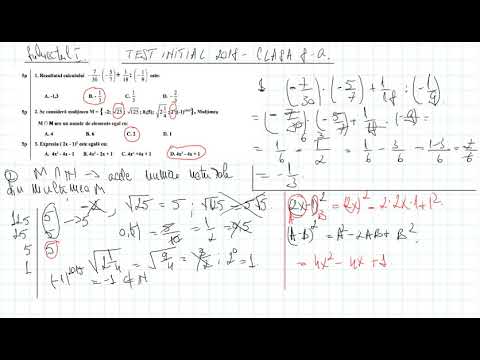 Subiectul I. TEST INITIAL 2018 - CLASA 8-a.
5p 1. Rezultatul calculului -7/30 · (-5/7) + 1/18 : (-1/9) este:
A. -1,3 B. -1/3 C. 1/3 D. -2/3
5p 2. Se consideră mulțimea M = { -2; √25; √125; 0,(5); √(2 1/4); 2⁰; (-1)²⁰¹⁷ }. Mulțimea
M ∩ N are un număr de elemente egal cu:
A. 4 B. 6 C. 2 D. 1
5p 3. Expresia (2x - 1)² este egală cu:
A. 4x² - 4x - 1 B. 4x² - 2x + 1 C. 4x² + 4x + 1 D. 4x² - 4x + 1
1 (-7/30) · (-5/7) + 1/18 : (-1/9)
(-7/30) · (-5/7) + 1/18 · (-9) =
= 1/6 - 1/2 = 1/6 - 3/6 = (1-3)/6 = -2/6
= -1/3.
2 M ∩ N → acele numere naturale
din multimea M
125 5
25 5 → 5
5 5
1
√25 = 5; √125 = 5√5
= 1/2 = 0,5
√(2 1/4) = √(9/4) = 3/2; 2⁰ = 1.
= -1 ∉ N
(2x-1)² = (2x)² - 2·2x·1 + 1².
(A-B)² = A² - 2AB + B².
= 4x² - 4x + 1